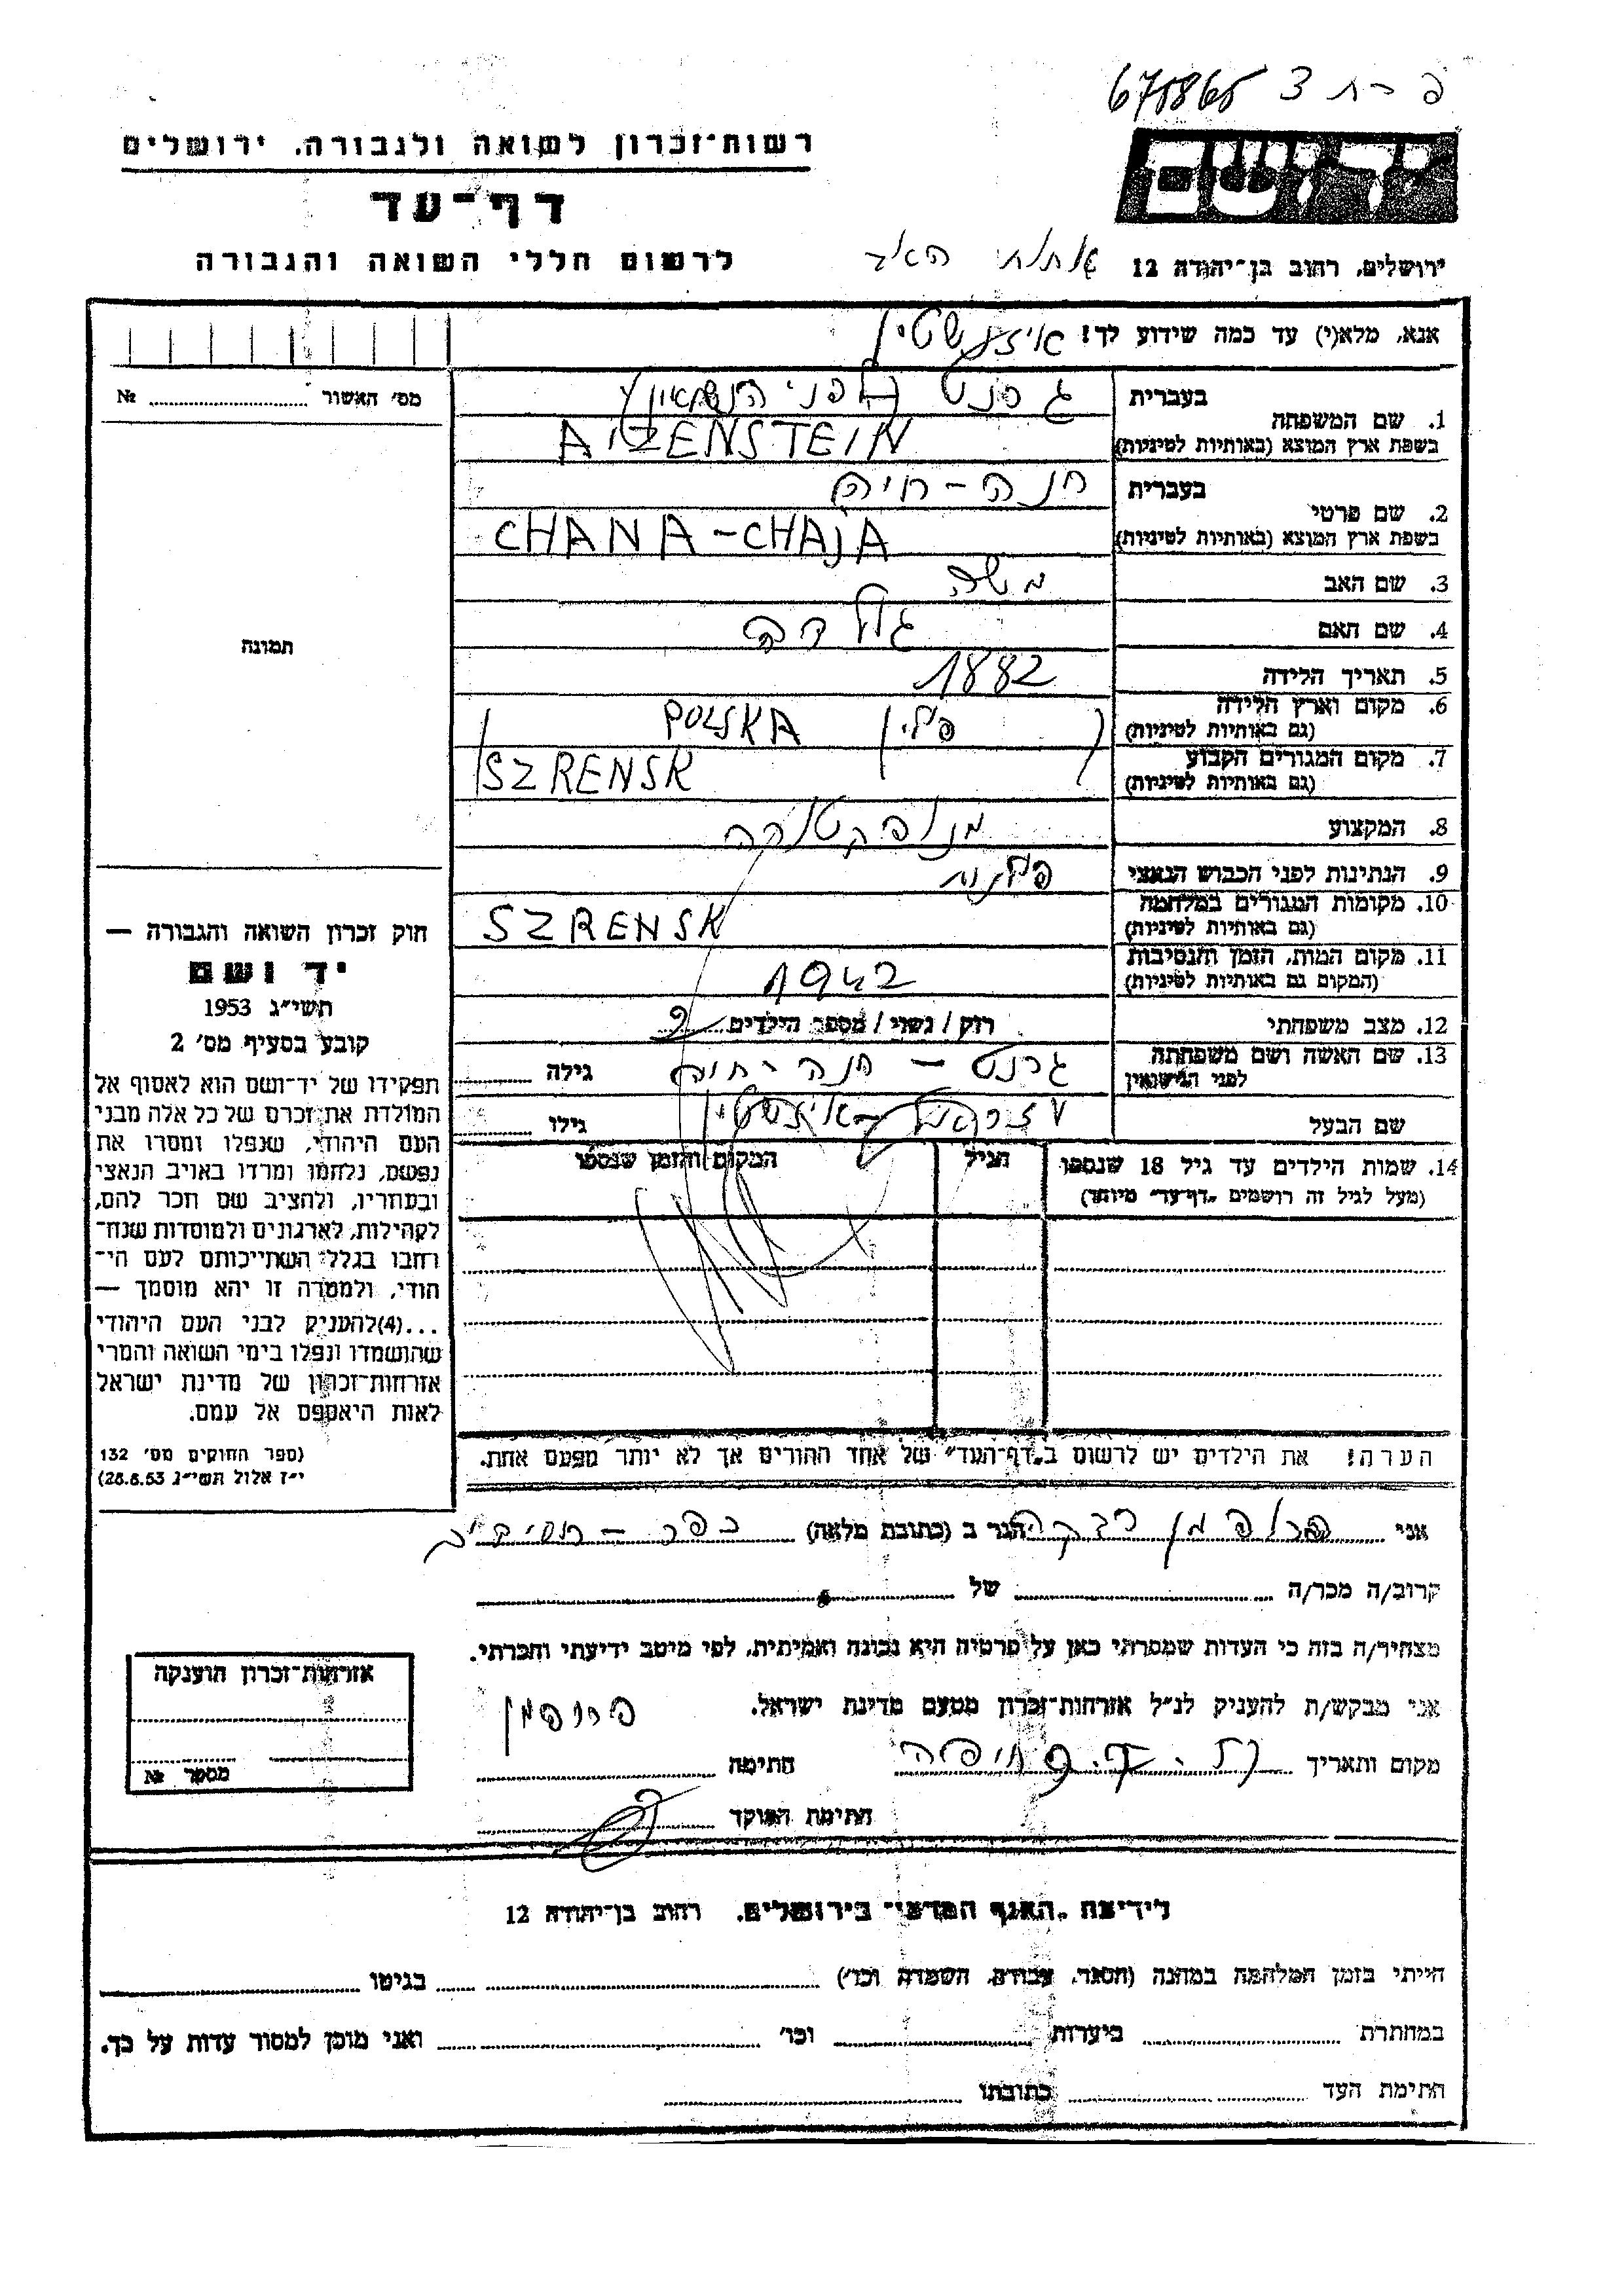 675865 פ - ח 3
רשות־זכרון לשואה ולגבורה, ירושלים
יד ושם
דף־עד
לרשום חללי השואה והגבורה
ירושלים, רחוב בן־יהודה 12
אנא, מלא(י) עד כמה שידוע לך! איזנשטיין
מס' האשור № 
תמונה
1. שם המשפחה
בעברית לפני הנשואין
בשפת ארץ המוצא (באותיות לטיניות) AIZENSTEIN
2. שם פרטי
בעברית חנה - חיה
בשפת ארץ המוצא (באותיות לטיניות) CHANA-CHAJA
3. שם האב משה
4. שם האם גולדה
5. תאריך הלידה 1882
6. מקום וארץ הלידה (גם באותיות לטיניות) פולין POLSKA
7. מקום המגורים הקבוע (גם באותיות לטיניות) SZRENSK
8. המקצוע
9. הנתינות לפני הכבוש הנאצי פולנית
10. מקומות המגורים במלחמה (גם באותיות לטיניות) SZRENSK
11. מקום המות, הזמן והנסיבות (המקום גם באותיות לטיניות) 1942
12. מצב משפחתי רוק / נשוי / מספר הילדים 2
13. שם האשה ושם משפחתה לפני הנישואין חנה - חיה גילה
שם הבעל איזנשטיין גילו
14. שמות הילדים עד גיל 18 שנספו הגיל המקום והזמן שנספו
(מעל לגיל זה רושמים „דף־עד” מיוחד)
הערה! את הילדים יש לרשום ב„דף־העד” של אחד ההורים אך לא יותר מפעם אחת.
חוק זכרון השואה והגבורה —
יד ושם
תשי״ג 1953
קובע בסעיף מס' 2
תפקידו של יד־ושם הוא לאסוף אל
המולדת את זכרם של כל אלה מבני
העם היהודי, שנפלו ומסרו את
נפשם, נלחמו ומרדו באויב הנאצי
ובעוזריו, ולהציב שם וזכר להם,
לקהילות, לארגונים ולמוסדות שנח־
רבו בגלל השתייכותם לעם הי־
הודי, ולמטרה זו יהא מוסמך —
...(4)להעניק לבני העם היהודי
שהושמדו ונפלו בימי השואה והמרי
אזרחות־זכרון של מדינת ישראל
לאות היאספם אל עמם.
(ספר החוקים מס' 132
י״ז אלול תשי״ג 28.8.53)
אני רבקה הגר ב (כתובת מלאה) כפר -
קרוב/ה מכר/ה של
מצהיר/ה בזה כי העדות שמסרתי כאן על פרטיה היא נכונה ואמיתית, לפי מיטב ידיעתי והכרתי.
אני מבקש/ת להעניק לנ״ל אזרחות־זכרון מטעם מדינת ישראל.
מקום ותאריך חיפה חתימה
חתימת הפוקד
אזרחות־זכרון הוענקה
מספר №
לידיעת „האגף המדעי” בירושלים, רחוב בן־יהודה 12
הייתי בזמן המלחמה במחנה (הסגר, עבודה, השמדה וכו') בגיטו
במחתרת ביערות וכו' ואני מוכן למסור עדות על כך.
חתימת העד כתובתו